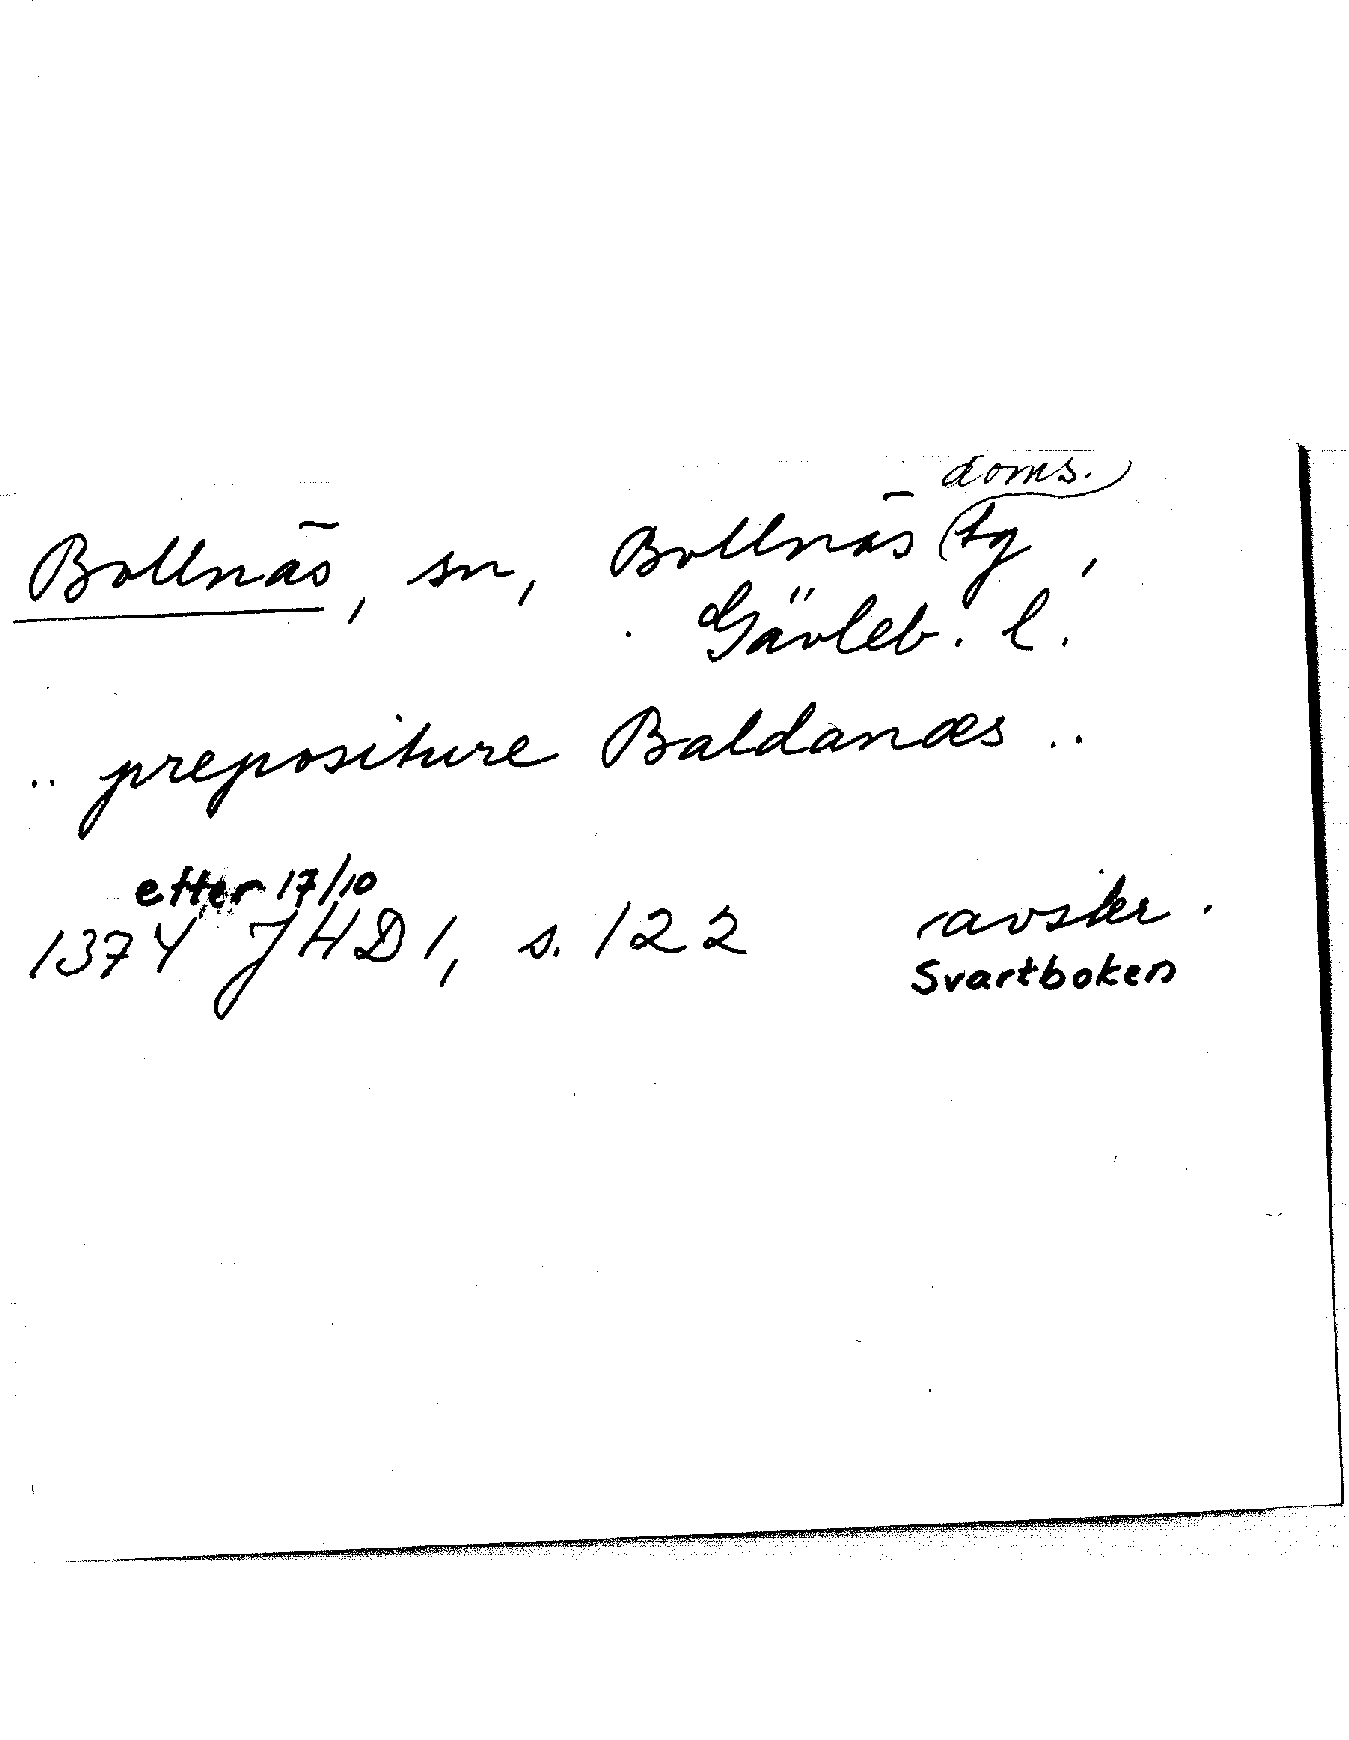 doms.
Bollnäs, sn, Bollnäs tg,
Gävleb. l.
.. prepositure Baldanæs ..
etter 17/10
1374 JHD 1, s. 122 avskr.
Svartboken